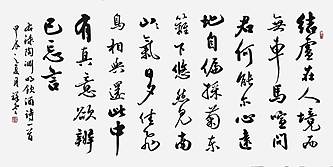 结庐在人境而
無車馬喧问
君何能尔心遠
地自偏採菊东
篱下悠然見南
山山氣日夕佳飛
鳥相與還此中
有真意欲辨
已忘言
右錄陶渊明飲酒诗一首
甲辰之夏月